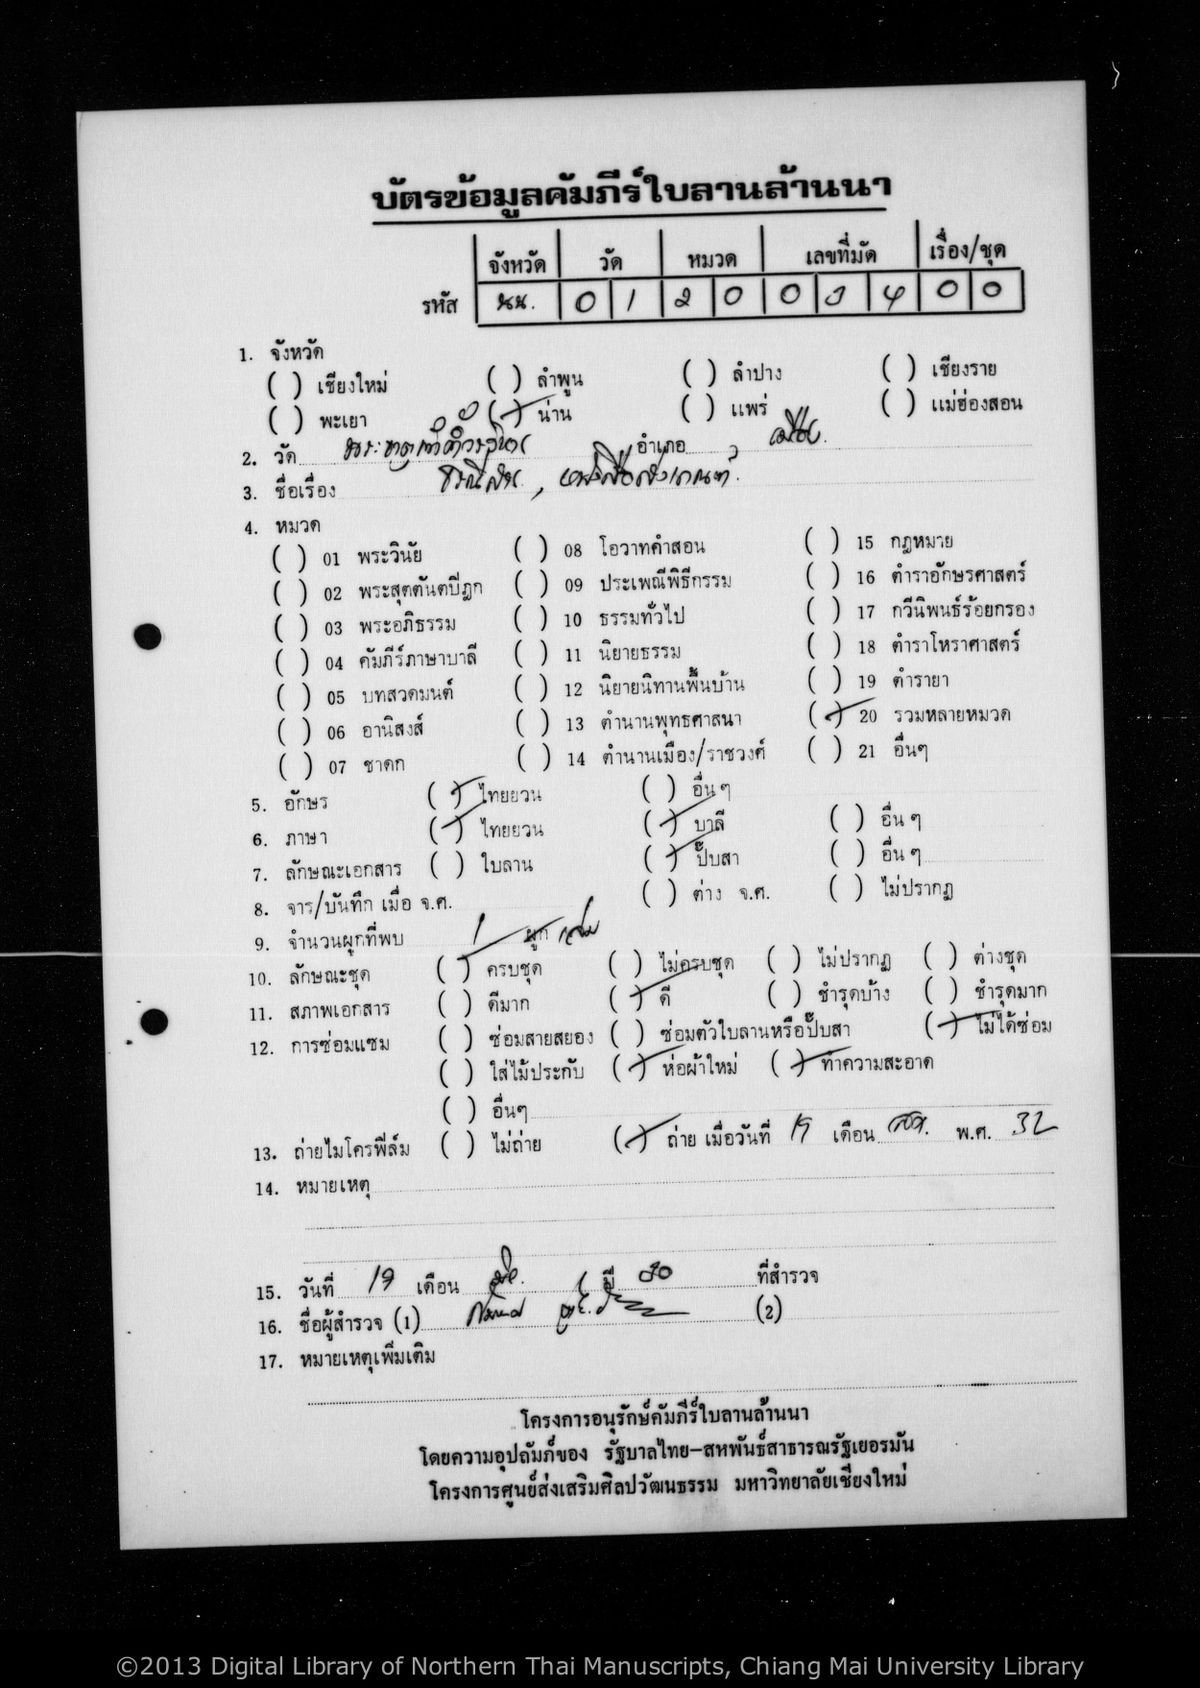 บัตรข้อมูลคัมภีร์ใบลานล้านนา
จังหวัด วัด หมวด เลขที่มัด เรื่อง/ชุด
รหัส นน. 0 1 2 0 0 3 4 0 0
1. จังหวัด
( ) เชียงใหม่ ( ) ลำพูน ( ) ลำปาง ( ) เชียงราย
( ) พะเยา (✓) น่าน ( ) แพร่ ( ) แม่ฮ่องสอน
2. วัด อำเภอ เมือง
3. ชื่อเรื่อง
4. หมวด
( ) 01 พระวินัย ( ) 08 โอวาทคำสอน ( ) 15 กฎหมาย
( ) 02 พระสุตตันตปิฎก ( ) 09 ประเพณีพิธีกรรม ( ) 16 ตำราอักษรศาสตร์
( ) 03 พระอภิธรรม ( ) 10 ธรรมทั่วไป ( ) 17 กวีนิพนธ์ร้อยกรอง
( ) 04 คัมภีร์ภาษาบาลี ( ) 11 นิยายธรรม ( ) 18 ตำราโหราศาสตร์
( ) 05 บทสวดมนต์ ( ) 12 นิยายนิทานพื้นบ้าน ( ) 19 ตำรายา
( ) 06 อานิสงส์ ( ) 13 ตำนานพุทธศาสนา (✓) 20 รวมหลายหมวด
( ) 07 ชาดก ( ) 14 ตำนานเมือง/ราชวงศ์ ( ) 21 อื่นๆ
5. อักษร (✓) ไทยยวน ( ) อื่น ๆ
6. ภาษา (✓) ไทยยวน (✓) บาลี ( ) อื่น ๆ
7. ลักษณะเอกสาร ( ) ใบลาน (✓) ปั๊บสา ( ) อื่น ๆ
8. จาร/บันทึก เมื่อ จ.ศ. ( ) ต่าง จ.ศ. ( ) ไม่ปรากฏ
9. จำนวนผูกที่พบ 1 ผูก เล่ม
10. ลักษณะชุด (✓) ครบชุด ( ) ไม่ครบชุด ( ) ไม่ปรากฏ ( ) ต่างชุด
11. สภาพเอกสาร ( ) ดีมาก (✓) ดี ( ) ชำรุดบ้าง ( ) ชำรุดมาก
12. การซ่อมแซม ( ) ซ่อมสายสยอง ( ) ซ่อมตัวใบลานหรือปั๊บสา (✓) ไม่ได้ซ่อม
( ) ใส่ไม้ประกับ (✓) ห่อผ้าใหม่ (✓) ทำความสะอาด
( ) อื่นๆ
13. ถ่ายไมโครฟิล์ม ( ) ไม่ถ่าย (✓) ถ่าย เมื่อวันที่ 19 เดือน พ.ศ. 32
14. หมายเหตุ
15. วันที่ 19 เดือน ปี 30 ที่สำรวจ
16. ชื่อผู้สำรวจ (1) (2)
17. หมายเหตุเพิ่มเติม
โครงการอนุรักษ์คัมภีร์ใบลานล้านนา
โดยความอุปถัมภ์ของ รัฐบาลไทย-สหพันธ์สาธารณรัฐเยอรมัน
โครงการศูนย์ส่งเสริมศิลปวัฒนธรรม มหาวิทยาลัยเชียงใหม่
©2013 Digital Library of Northern Thai Manuscripts, Chiang Mai University Library